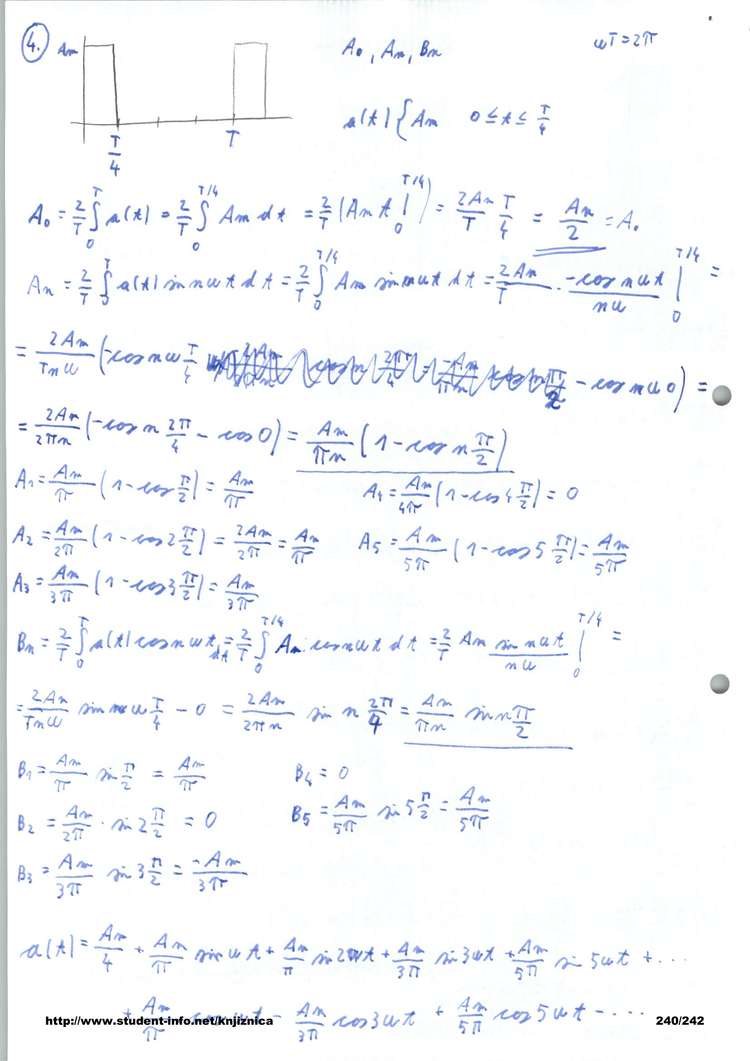 4. Am A₀, An, Bn ωT=2π
a(t) { Am 0 ≤ t ≤ T/4
T/4 T
A₀ = 2/T ∫₀ᵀ a(t) = 2/T ∫₀^(T/4) Am dt = 2/T (Am t |₀^(T/4)) = 2Am/T T/4 = Am/2 = A₀
An = 2/T ∫₀ᵀ a(t) sin nωt dt = 2/T ∫₀^(T/4) Am sin nωt dt = 2Am/T · -cos nωt/nω |₀^(T/4) =
= 2Am/Tnω (-cos nω T/4 - cos nω0) =
= 2Am/2πn (-cos n 2π/4 - cos 0) = Am/πn (1 - cos n π/2)
A₁ = Am/π (1 - cos π/2) = Am/π A₄ = Am/4π (1 - cos 4 π/2) = 0
A₂ = Am/2π (1 - cos 2 π/2) = 2Am/2π = Am/π A₅ = Am/5π (1 - cos 5 π/2) = Am/5π
A₃ = Am/3π (1 - cos 3 π/2) = Am/3π
Bn = 2/T ∫₀ᵀ a(t) cos nωt dt = 2/T ∫₀^(T/4) Am cos nωt dt = 2/T Am sin nωt/nω |₀^(T/4) =
= 2Am/Tnω sin nω T/4 - 0 = 2Am/2πn sin n 2π/4 = Am/πn sin n π/2
B₁ = Am/π sin π/2 = Am/π B₄ = 0
B₂ = Am/2π · sin 2 π/2 = 0 B₅ = Am/5π sin 5 π/2 = Am/5π
B₃ = Am/3π sin 3 π/2 = -Am/3π
a(t) = Am/4 + Am/π sin ωt + Am/π sin 2ωt + Am/3π sin 3ωt + Am/5π sin 5ωt + ...
+ Am/π cos ωt - Am/3π cos 3ωt + Am/5π cos 5ωt - ...
http://www.student-info.net/knjiznica 240/242